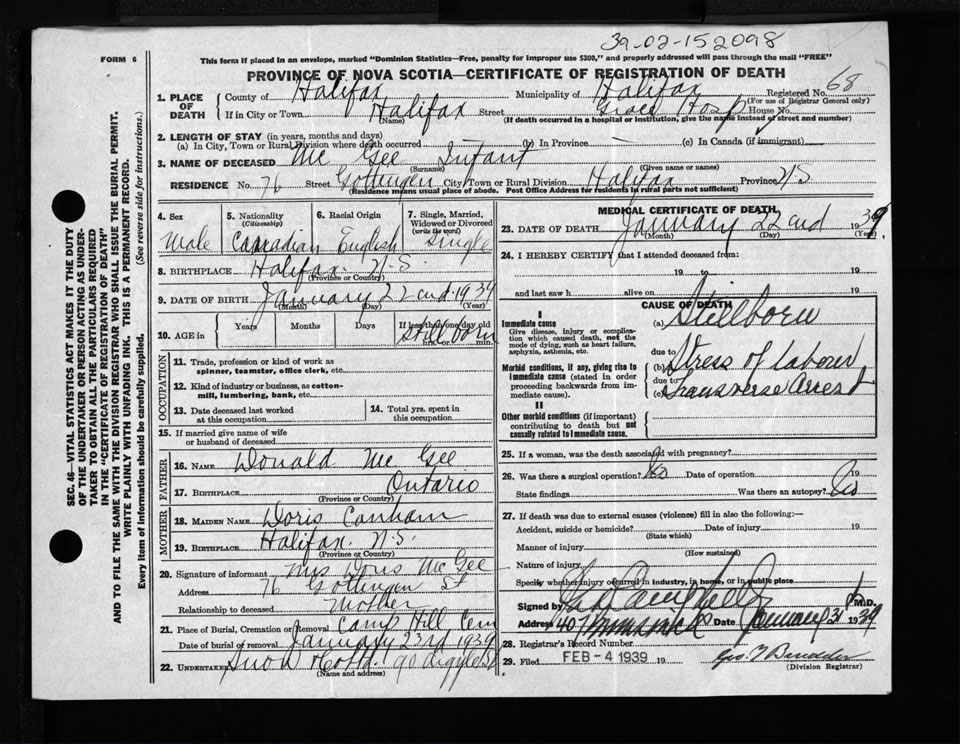 39-02-152098
FORM 6
This form if placed in an envelope, marked "Dominion Statistics—Free, penalty for improper use $300," and properly addressed will pass through the mail "FREE"
PROVINCE OF NOVA SCOTIA—CERTIFICATE OF REGISTRATION OF DEATH
1. PLACE OF DEATH
County of Halifax Municipality of Halifax Registered No. 68
(For use of Registrar General only)
If in City or Town Halifax Street Grace Hosp House No.
(Name) (If death occurred in a hospital or institution, give the name instead of street and number)
2. LENGTH OF STAY (in years, months and days)
(a) In City, Town or Rural Division where death occurred (b) In Province (c) In Canada (if immigrant)
3. NAME OF DECEASED Mc Gee Infant
(Surname) (Given name or names)
RESIDENCE No. 76 Street Gottingen City, Town or Rural Division Halifax Province N S
(Residence means usual place of abode. Post Office Address for residents in rural parts not sufficient)
SEC. 46—VITAL STATISTICS ACT MAKES IT THE DUTY
OF THE UNDERTAKER OR PERSON ACTING AS UNDER-
TAKER TO OBTAIN ALL THE PARTICULARS REQUIRED
IN THE "CERTIFICATE OF REGISTRATION OF DEATH"
AND TO FILE THE SAME WITH THE DIVISION REGISTRAR WHO SHALL ISSUE THE BURIAL PERMIT.
WRITE PLAINLY WITH UNFADING INK. THIS IS A PERMANENT RECORD.
Every item of information should be carefully supplied. (See reverse side for instructions.)
4. Sex 5. Nationality (Citizenship) 6. Racial Origin 7. Single, Married, Widowed or Divorced (write the word)
Male Canadian English Single
8. BIRTHPLACE Halifax. N.S.
(Province or Country)
9. DATE OF BIRTH January 22nd 1939
(Month) (Day) (Year)
10. AGE in Years Months Days If less than one day old
Stillborn
hrs. or min.
OCCUPATION
11. Trade, profession or kind of work as
spinner, teamster, office clerk, etc.
12. Kind of industry or business, as cotton-
mill, lumbering, bank, etc.
13. Date deceased last worked
at this occupation
14. Total yrs. spent in
this occupation
15. If married give name of wife
or husband of deceased
FATHER
16. NAME Donald Mc Gee
17. BIRTHPLACE Ontario
(Province or Country)
MOTHER
18. MAIDEN NAME Doris Canham
19. BIRTHPLACE Halifax. N.S.
(Province or Country)
20. Signature of informant Mrs Doris Mc Gee
Address 76 Gottingen St
Relationship to deceased Mother
21. Place of Burial, Cremation or Removal Camp Hill Cem
Date of burial or removal January 23rd 1939
22. UNDERTAKER Snow 90 Argyle St
(Name and address)
MEDICAL CERTIFICATE OF DEATH
23. DATE OF DEATH January 22nd 1939.
(Month) (Day) (Year)
24. I HEREBY CERTIFY that I attended deceased from:
19 to 19
and last saw h alive on 19
CAUSE OF DEATH
I
Immediate cause
Give disease, injury or complica-
tion which caused death, not the
mode of dying, such as heart failure,
asphyxia, asthenia, etc.
(a) Stillborn
due to
Morbid conditions, if any, giving rise to
immediate cause (stated in order
proceeding backwards from im-
mediate cause).
(b) Stress of labour
due to
(c) Transverse Arrest
II
Other morbid conditions (if important)
contributing to death but not
causally related to immediate cause.
25. If a woman, was the death associated with pregnancy?
26. Was there a surgical operation? No Date of operation 19
State findings Was there an autopsy? No
27. If death was due to external causes (violence) fill in also the following:—
Accident, suicide or homicide? Date of injury 19
(State which)
Manner of injury
(How sustained)
Nature of injury
Specify whether injury occurred in industry, in home, or in public place
Signed by Campbell M.D.
Address 407 Date January 31 1939
28. Registrar's Record Number
29. Filed FEB -4 1939 19
(Division Registrar)